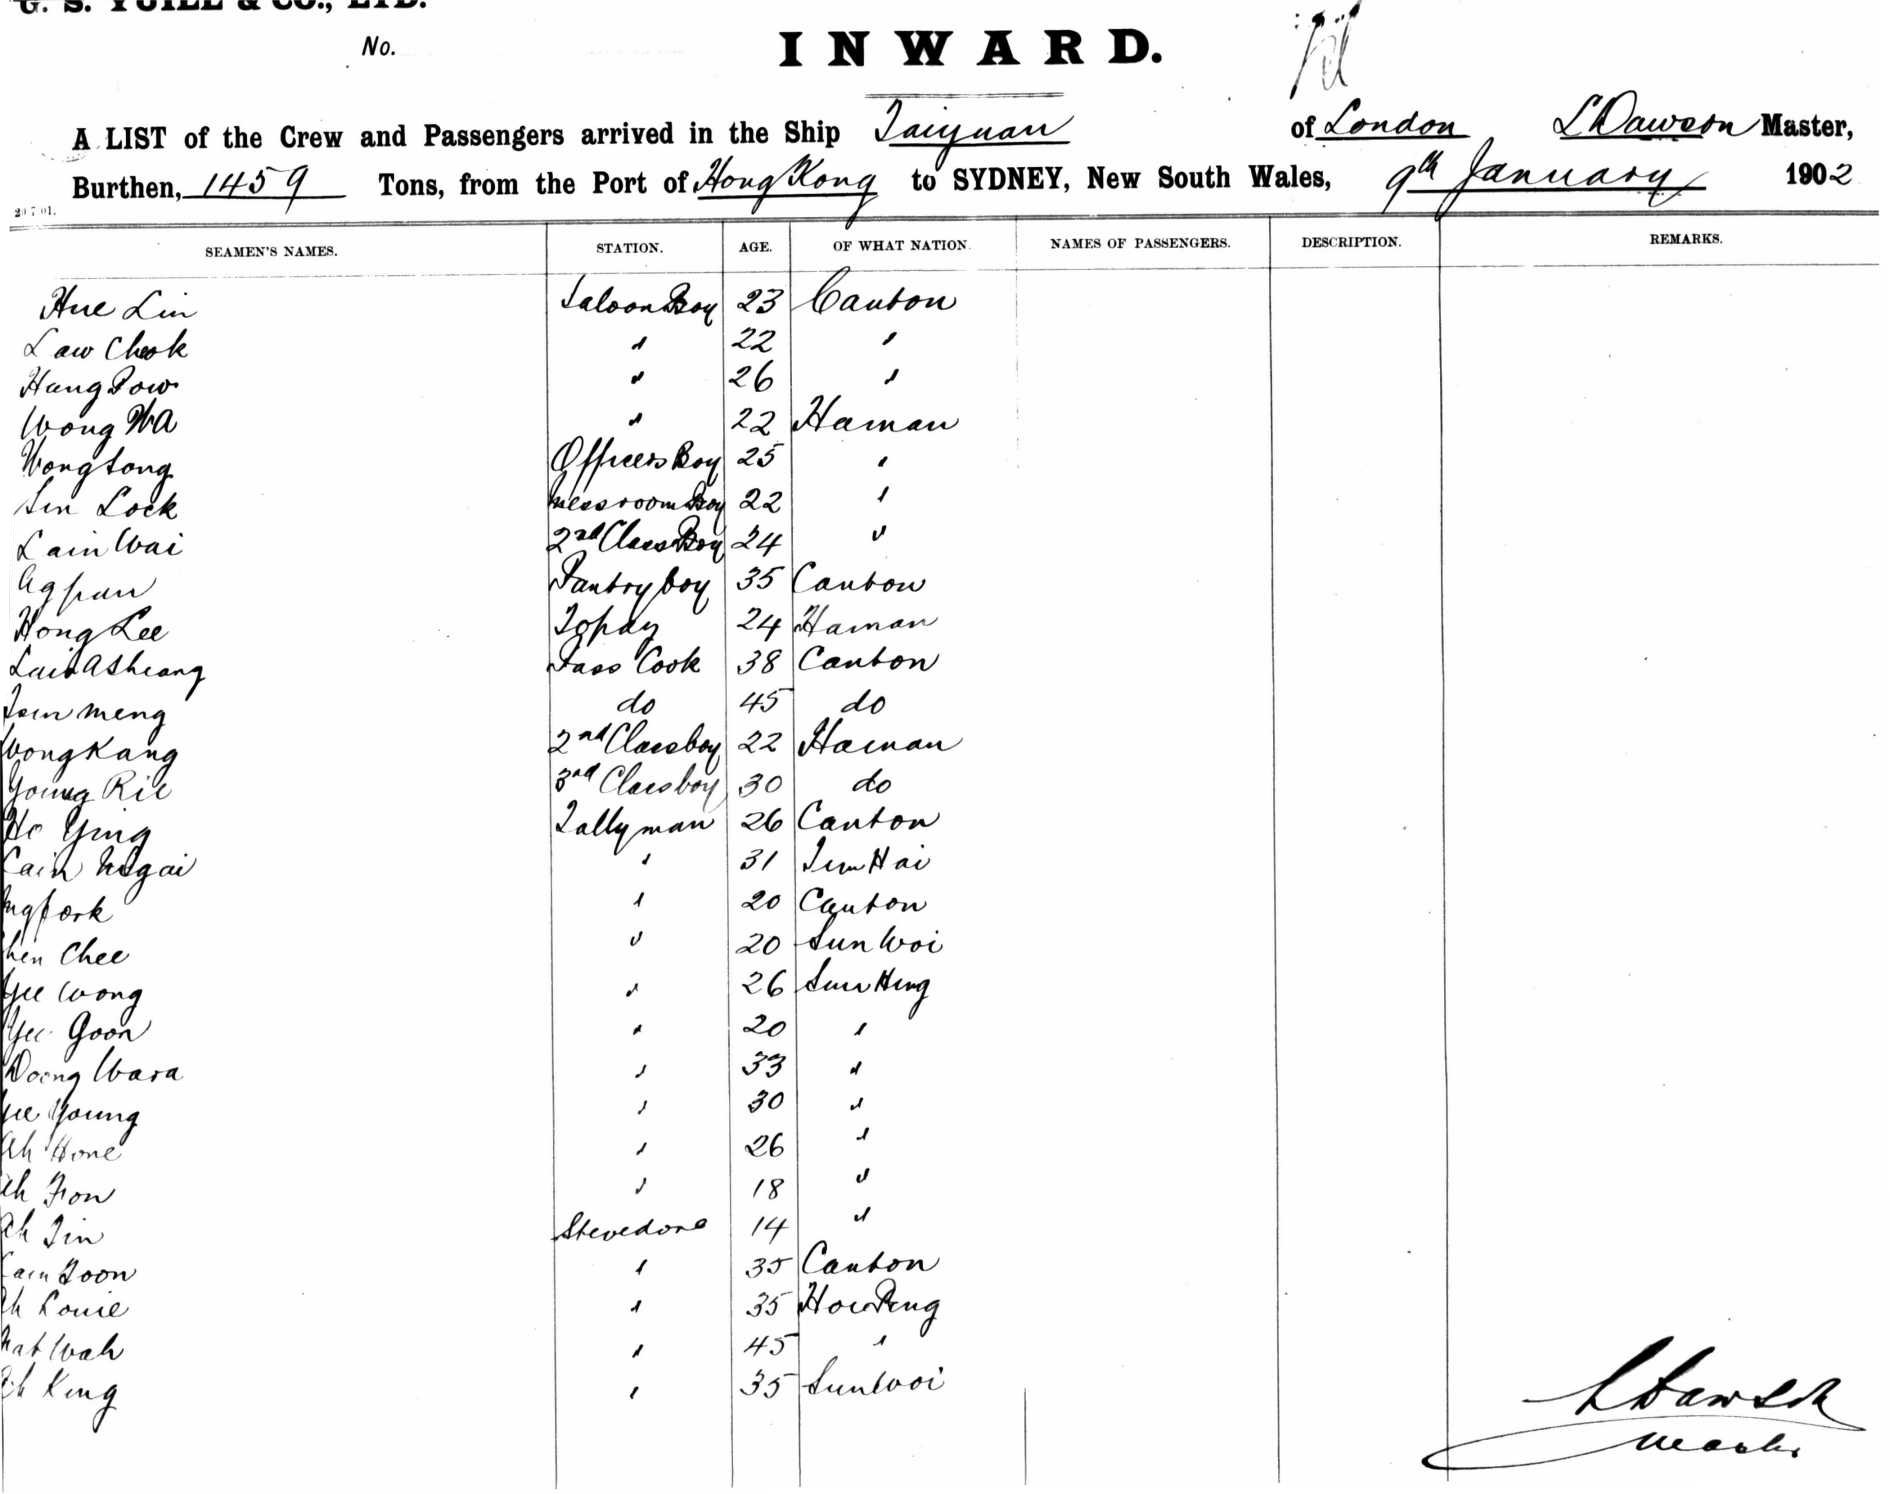 G. S. YUILL & CO., LTD.
No.
INWARD.
A LIST of the Crew and Passengers arrived in the Ship Taiyuan of London L Dawson Master,
Burthen, 1459 Tons, from the Port of Hong Kong to SYDNEY, New South Wales, 9th January 1902
20.7.01.
SEAMEN'S NAMES. STATION. AGE. OF WHAT NATION. NAMES OF PASSENGERS. DESCRIPTION. REMARKS.
Hue Lin Saloon Boy 23 Canton
Law Chook " 22 "
Hang Pow " 26 "
Wong Wa " 22 Hainan
Wong Song Officers Boy 25 "
Sin Lock Messroom Boy 22 "
Lain Wai 2nd Class Boy 24 "
Pantry boy 35 Canton
Hong Lee Topay 24 Hainan
Pass Cook 38 Canton
Meng do 45 do
Wong Kang 2nd Class boy 22 Hainan
Young Rie 3rd Class boy 30 do
Ho Ying Tallyman 26 Canton
" 31 Hai
" 20 Canton
Chee " 20 Sun Woi
Yee Wong " 26 Sun Hing
Yee Goon " 20 "
" 33 "
Yee Young " 30 "
Ah Hone " 26 "
Ah Fon " 18 "
Ah Tin Stevedore 14 "
" 35 Canton
Ah Louie " 35
Wah " 45 "
Ah King " 35 Sun Woi
L Dawson
Master